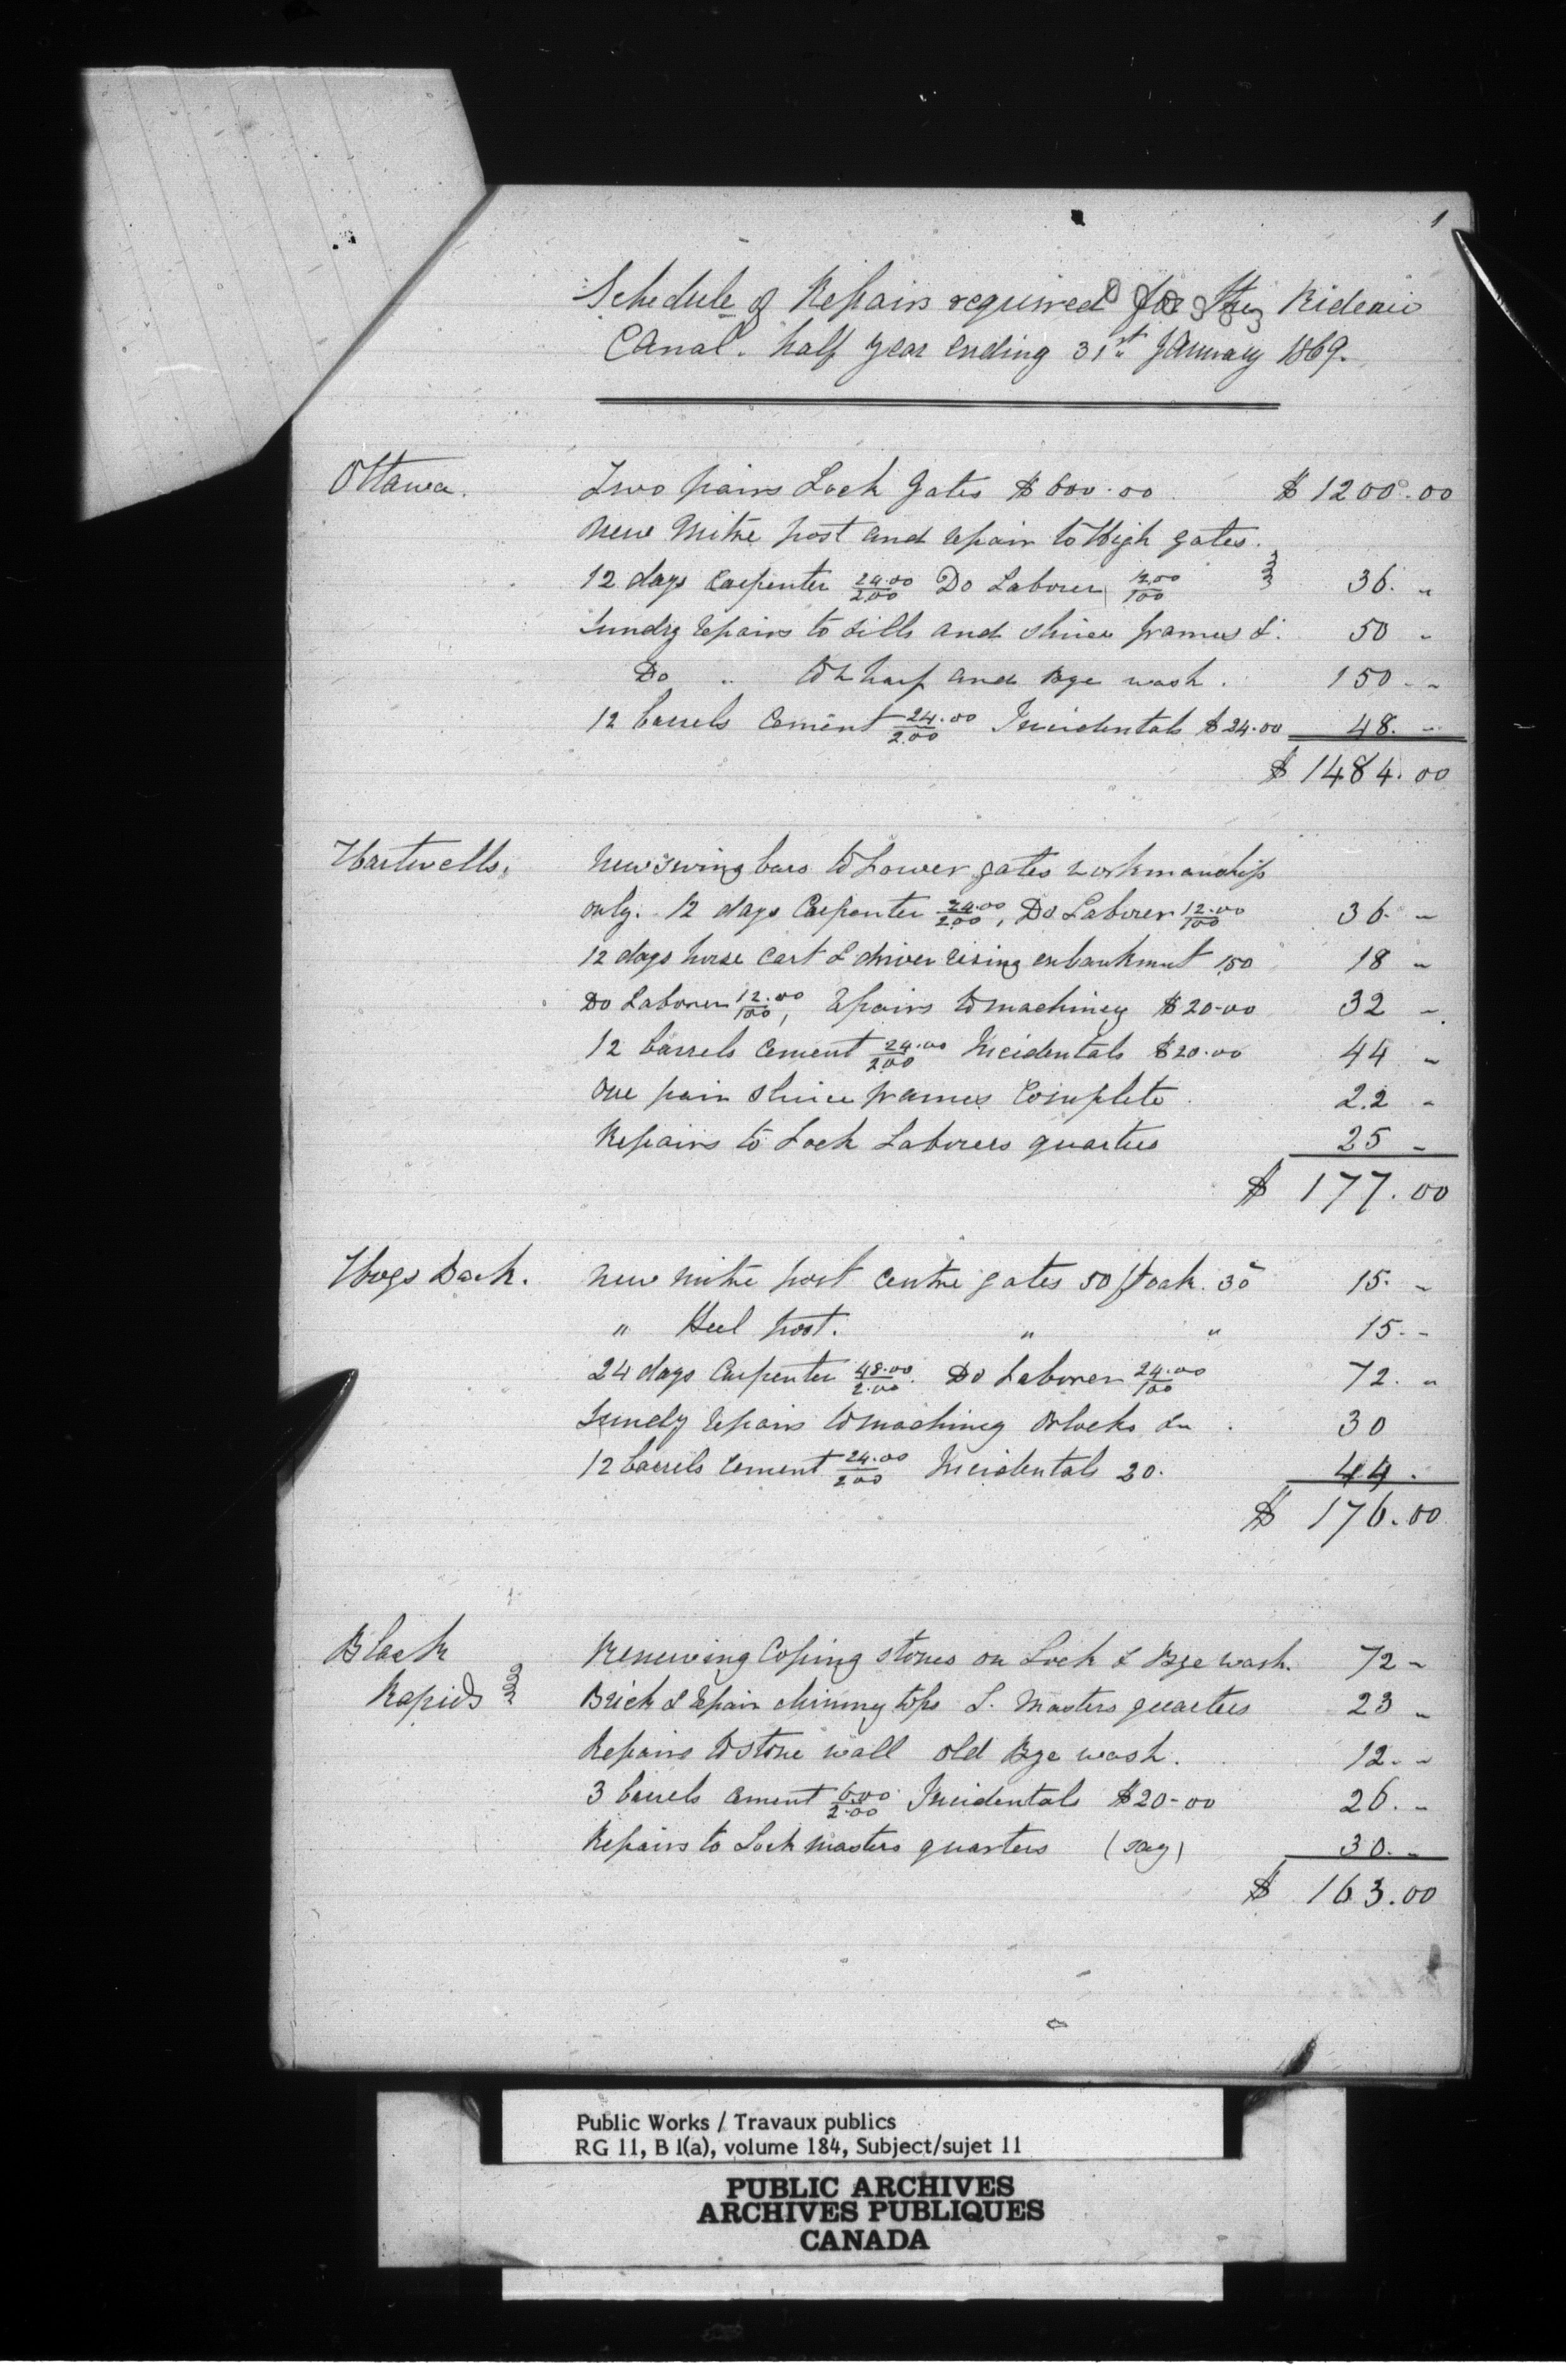 1
Schedule of Repairs required for the Rideau
Canal. half year ending 31st January 1869.
Ottawa. Two pairs Lock Gates $600.00 $1200.00
New Mitre post and repair to High gates.
12 days Carpenter 24.00/2.00 Do Laborer 12.00/100 36. "
Sundry repairs to sills and sluice frames &. 50 "
Do " to Wharf and Bye wash. 150 "
12 barrels Cement 24.00/2.00 Incidentals $24.00 48. "
$1484.00
Hartwells. New swing bars to Lower gates workmanship
only. 12 days Carpenter 24.00/2.00, Do Laborer 12.00/100 36. "
12 days horse Cart & driver rising enbankment 150 18 "
Do Laborer 12.00/100, repairs to machinery $20.00 32 "
12 barrels Cement 24.00/2.00 Incidentals $20.00 44 "
One pair sluice frames Complete 22 "
Repairs to Lock Laborers quarters 25 "
$177.00
Hogs Back. New mitre post Centre gates 50 ft oak. 30 15. "
" Heel post. " " 15. "
24 days Carpenter 48.00/2.00. Do Laborer 24.00/100 72. "
Sundry repairs to machinery Blocks &c 30
12 barrels Cement 24.00/2.00 Incidentals 20. 44.
$176.00
Black Renewing Coping stones on Lock & Bye wash. 72 "
Rapids Brick & repair chimney tops L. Masters quarters 23 "
Repairs to stone wall old Bye wash. 12. "
3 barrels Cement 6.00/2.00 Incidentals $20.00 26. "
Repairs to Lock masters quarters (say) 30. "
$163.00
Public Works / Travaux publics
RG 11, B 1(a), volume 184, Subject/sujet 11
PUBLIC ARCHIVES
ARCHIVES PUBLIQUES
CANADA